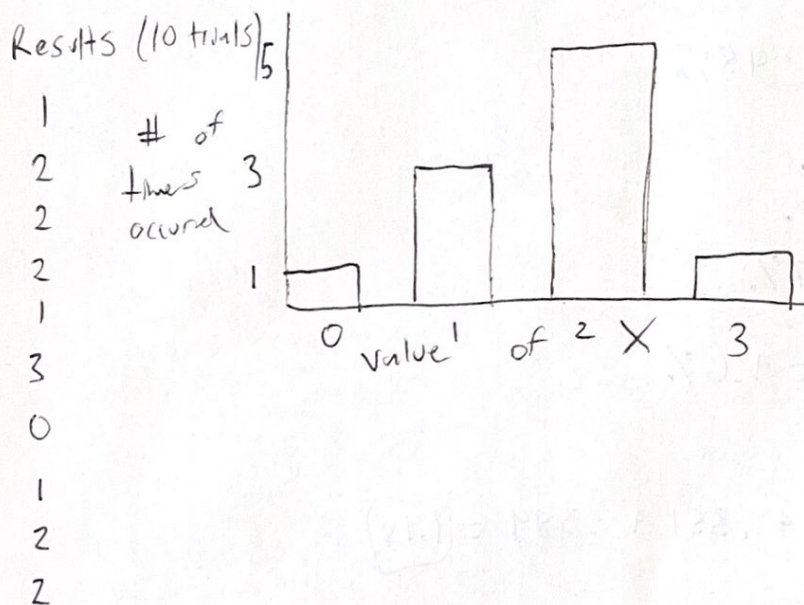 Results (10 trials)
1
2
2
2
1
3
0
1
2
2
# of
times
occured
5
3
1
0 1 2 3
value of X